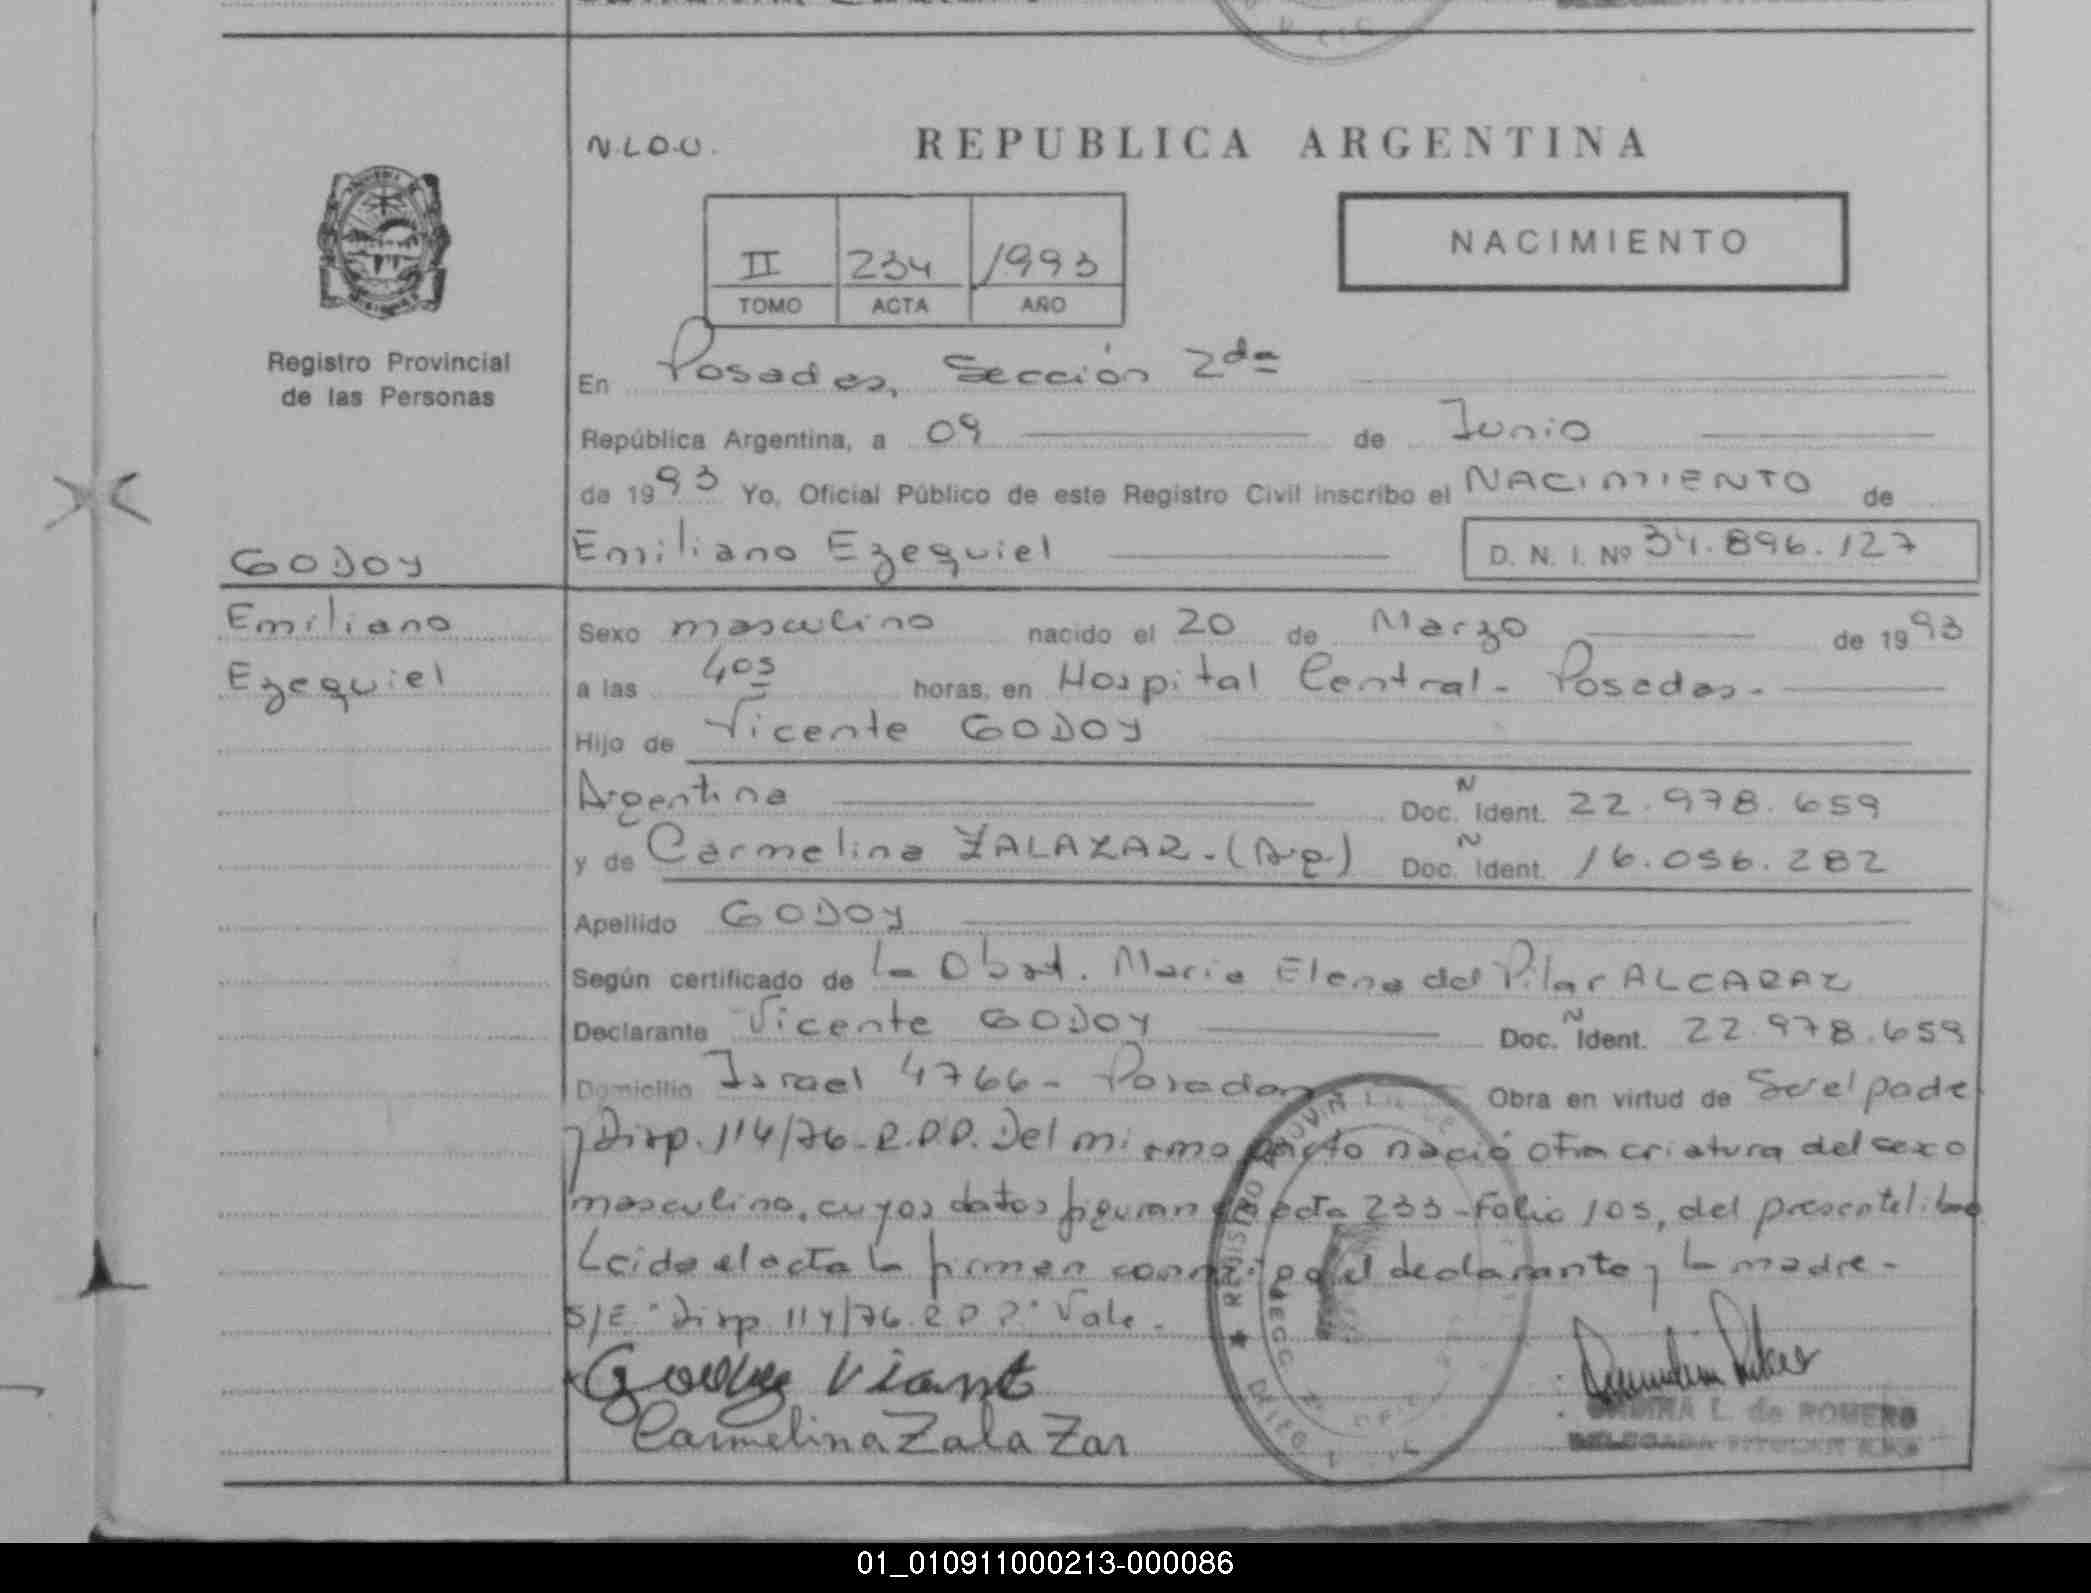 N.L.O.U.
REPUBLICA ARGENTINA
II 234 1993
TOMO ACTA AÑO
NACIMIENTO
Registro Provincial
de las Personas
En Posadas, Sección 2da
República Argentina, a 09 de Junio
de 1993 Yo, Oficial Público de este Registro Civil inscribo el NACIMIENTO de
GODOY
Emiliano Ezequiel D. N. I. Nº 34.896.127
Emiliano
Ezequiel
Sexo masculino nacido el 20 de Marzo de 1993
a las 405 horas, en Hospital Central - Posadas -
Hijo de Vicente GODOY
Argentina Doc. N Ident. 22.978.659
y de Carmelina ZALAZAR - (Arg) Doc. N Ident. 16.056.282
Apellido GODOY
Según certificado de la Obst. Maria Elena del Pilar ALCARAZ
Declarante Vicente GODOY Doc. N Ident. 22.978.659
Domicilio Israel 4766 - Posadas Obra en virtud de Ser el padre
y Disp. 114/76 - R.P.P. Del mismo parto nació otra criatura del sexo
masculino, cuyos datos figuran en acta 233 - Folio 105, del presente libro
Leida el acta la firman conmigo el declarante y la madre -
S/E "Disp. 114/76. R.P.P." Vale.
Godoy Vicente
Carmelina ZalaZar
REGISTRO
L. de ROMERO
DELEGADA TITULAR
01_010911000213-000086